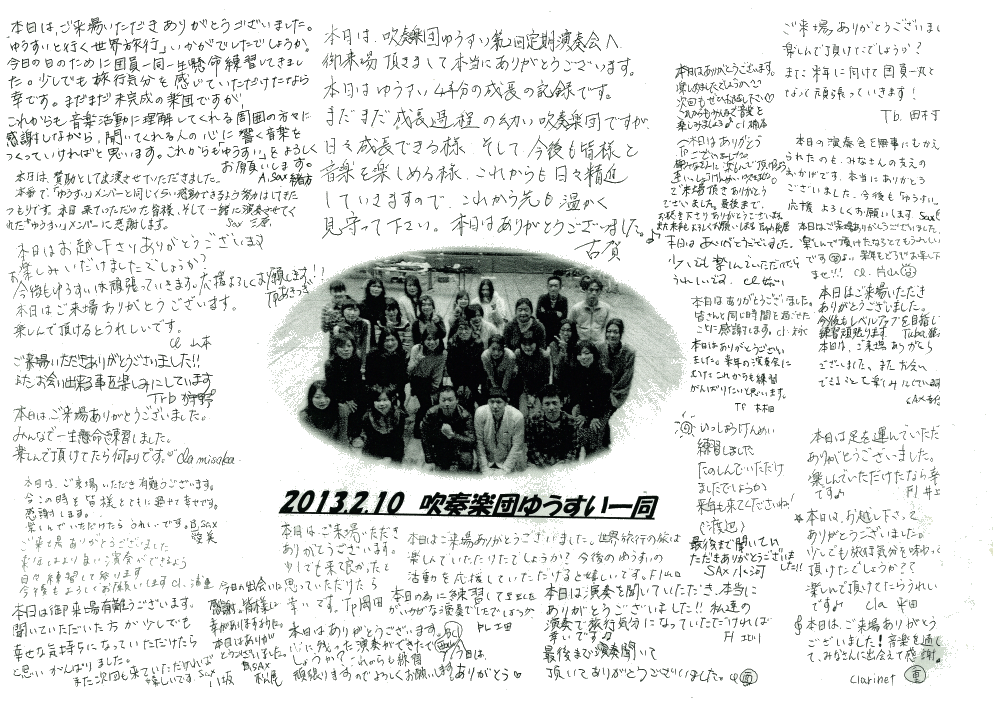 本日は、ご来場いただきありがとうございました。
「ゆうすいと行く世界旅行」いかがでしたでしょうか。
今日の日のために団員一同一生懸命練習してきまし
た。少しでも旅行気分を感じていただけたなら
幸です。まだまだ未完成の楽団ですが、
これからも音楽活動に理解してくれる周囲の方々に
感謝しながら、聞いてくれる人の心に響く音楽を
つくっていければと思います。これからも「ゆうすい」をよろしく
お願いします。
A.Sax 緒方
本日は、賛助として出演させていただきました。
本番で、「ゆうすい」メンバーと同じくらい感動できるよう努力はしてきた
つもりです。本日来ていただいた皆様、そして一緒に演奏させてく
れた「ゆうすい」メンバーに感謝します。
Sax 三原
本日はお越し下さりありがとうございます
お楽しみいただけましたでしょうか?
今後もゆうすいは頑張っていきます。応援よろしくお願します!!
本日はご来場ありがとうございます。
楽しんで頂けるとうれしいです。
Cl 山本
ご来場いただきありがとうございました!!
またお会い出来る事を楽しみにしています
Trb 狩野
本日は、ご来場ありがとうございました。
みんなで一生懸命練習しました。
楽しんで頂けてたら何よりです。 cla misaka
本日は、ご来場いただき有難うございます。
今この時を皆様とともに過せて幸せです。
感謝します。
楽しんでいただけたらうれしいです。
ご来場ありがとうございました
来年はより良い演奏ができるよう
日々練習して参ります
今後もよろしくお願いします cl.
本日は御来場有難うございます。
聞いていただいた方が少しでも
幸せな気持ちになっていただけたら
と思いがんばりました。
また次回も来ていただければ
嬉しいです。Sax 八坂
今日の出会いに
感謝。皆様に
幸がありますように。
本日はありが
とうございました。
B.SAX 松尾
本日は、吹奏楽団ゆうすい第2回定期演奏会へ
御来場頂きまして本当にありがとうございます。
本日はゆうすい4年分の成長の記録です。
まだまだ成長過程の幼い吹奏楽団ですが、
日々成長できる様、そして今後も皆様と
音楽を楽しめる様、これからも日々精進
していきますので、これから先も温かく
見守って下さい。本日はありがとうございました。♪
古賀
2013.2.10 吹奏楽団ゆうすい一同
本日は、ご来場いただき
ありがとうございます。
少しでも来て良かったと
思っていただけたら
幸いです。Tp岡田
本日はありがとうございます。
心に残った演奏ができたで
しょうか?これからも練習
頑張りますのでよろしくお願いします。
本日はご来場ありがとうございました。世界旅行の旅は
楽しんでいただけたでしょうか?今後のゆうすいの
活動を応援していただけると嬉しいです。Fl山口
本日の為に練習して参りました
がいかがな演奏でしたでしょうか
ありがとう
本日は演奏を聞いていただき、本当に
ありがとうございました!!私達の
演奏で旅行気分になっていただければ
幸いです♫
Fl 江川
最後まで演奏聞いて
頂いてありがとうございました。
本日はありがとうございます。
楽しめましたでしょうか
次回もぜひお越し下さい♡
これからもゆうすいと音楽を
楽しみましょう♪
本日はありがとう
ございました。
ご来場頂きありがとう
ございました。最後まで、
お聴き下さりありがとうございます。
本日はありがとうございました。
少しでも楽しんでいただけたら
うれしいです。
本日はありがとうございました。
皆さんと同じ時間を過ごせた
ことに感謝します。
本日はありがとうござい
ました。来年の演奏会に
むけこれからも練習
がんばりたいと思います。
Tp 林田
いっしょうけんめい
練習しました
たのしんでいただけ
ましたでしょうか
来年も来てくださいね!
(渡辺)
最後まで聞いてい
ただきありがとうございま
した!!
SAX 小河
ご来場ありがとうございまし
楽しんで頂けたでしょうか?
また来年に向けて団員一丸と
なって頑張っていきます!
Tb 田村
本日の演奏会を無事にむかえ
られたのも、みなさんの支えの
おかげです。本当にありがとう
ございました。今後も「ゆうすい」
応援よろしくお願いします
本日はご来場ありがとうございました。
楽しんで頂けたならとてもうれしい
です
cl. 片山
本日はご来場いただき
ありがとうございました。
今後もレベルアップを目指し
練習頑張ります
本日は、ご来場ありがとう
ございました。また お会い
できることを楽しみにしています
本日は足を運んでいただ
ありがとうございました。
楽しんでいただけたなら幸
です♪ Fl 井上
本日は、お越し下さって
ありがとうございました。
少しでも旅行気分を味わって
頂けたでしょうか??
楽しんで頂けてたらうれしい
です♪ cla 平田
本日は、ご来場ありがとう
ございました!音楽を通し
て、みなさんに出会えて感謝。
Clarinet 重